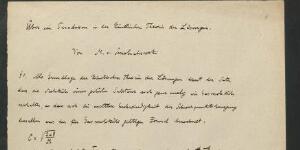 Über ein Paradoxon in der kinetischen Theorie der Lösungen.
Von M. v. Smoluchowski
§1. Als Grundlage der kinetischen Theorie der Lösungen dient der Satz,
dass die Moleküle einer gelösten Substanz sich ganz analog wie Gasmoleküle
verhalten, so dass sich die mittlere Geschwindigkeit der Schwerpunktsbewegung
derselben aus der für Gasmoleküle gültigen Formel berechnet.
C =